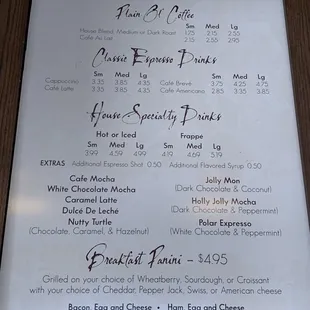 Plain Ol' Coffee
Sm Med Lg
House Blend, Medium or Dark Roast 1.75 2.15 2.55
Cafe Au Lait 2.15 2.55 2.95
Classic Espresso Drinks
Sm Med Lg Sm Med Lg
Cappuccino 3.35 3.85 4.35 Café Brevé 3.75 4.25 4.75
Café Latte 3.35 3.85 4.35 Café Americano 2.85 3.35 3.85
House Specialty Drinks
Hot or Iced Frappe
Sm Med Lg Sm Med Lg
3.99 4.59 4.99 4.19 4.69 5.19
EXTRAS Additional Espresso Shot 0.50 Additional Flavored Syrup 0.50
Cafe Mocha Jolly Mon
White Chocolate Mocha (Dark Chocolate & Coconut)
Caramel Latte Holly Jolly Mocha
Dulcé De Leché (Dark Chocolate & Peppermint)
Nutty Turtle Polar Espresso
(Chocolate, Caramel, & Hazelnut) (White Chocolate & Peppermint)
Breakfast Panini – $4.95
Grilled on your choice of Wheatberry, Sourdough, or Croissant
with your choice of Cheddar, Pepper Jack, Swiss, or American cheese
Bacon, Egg and Cheese • Ham, Egg and Cheese